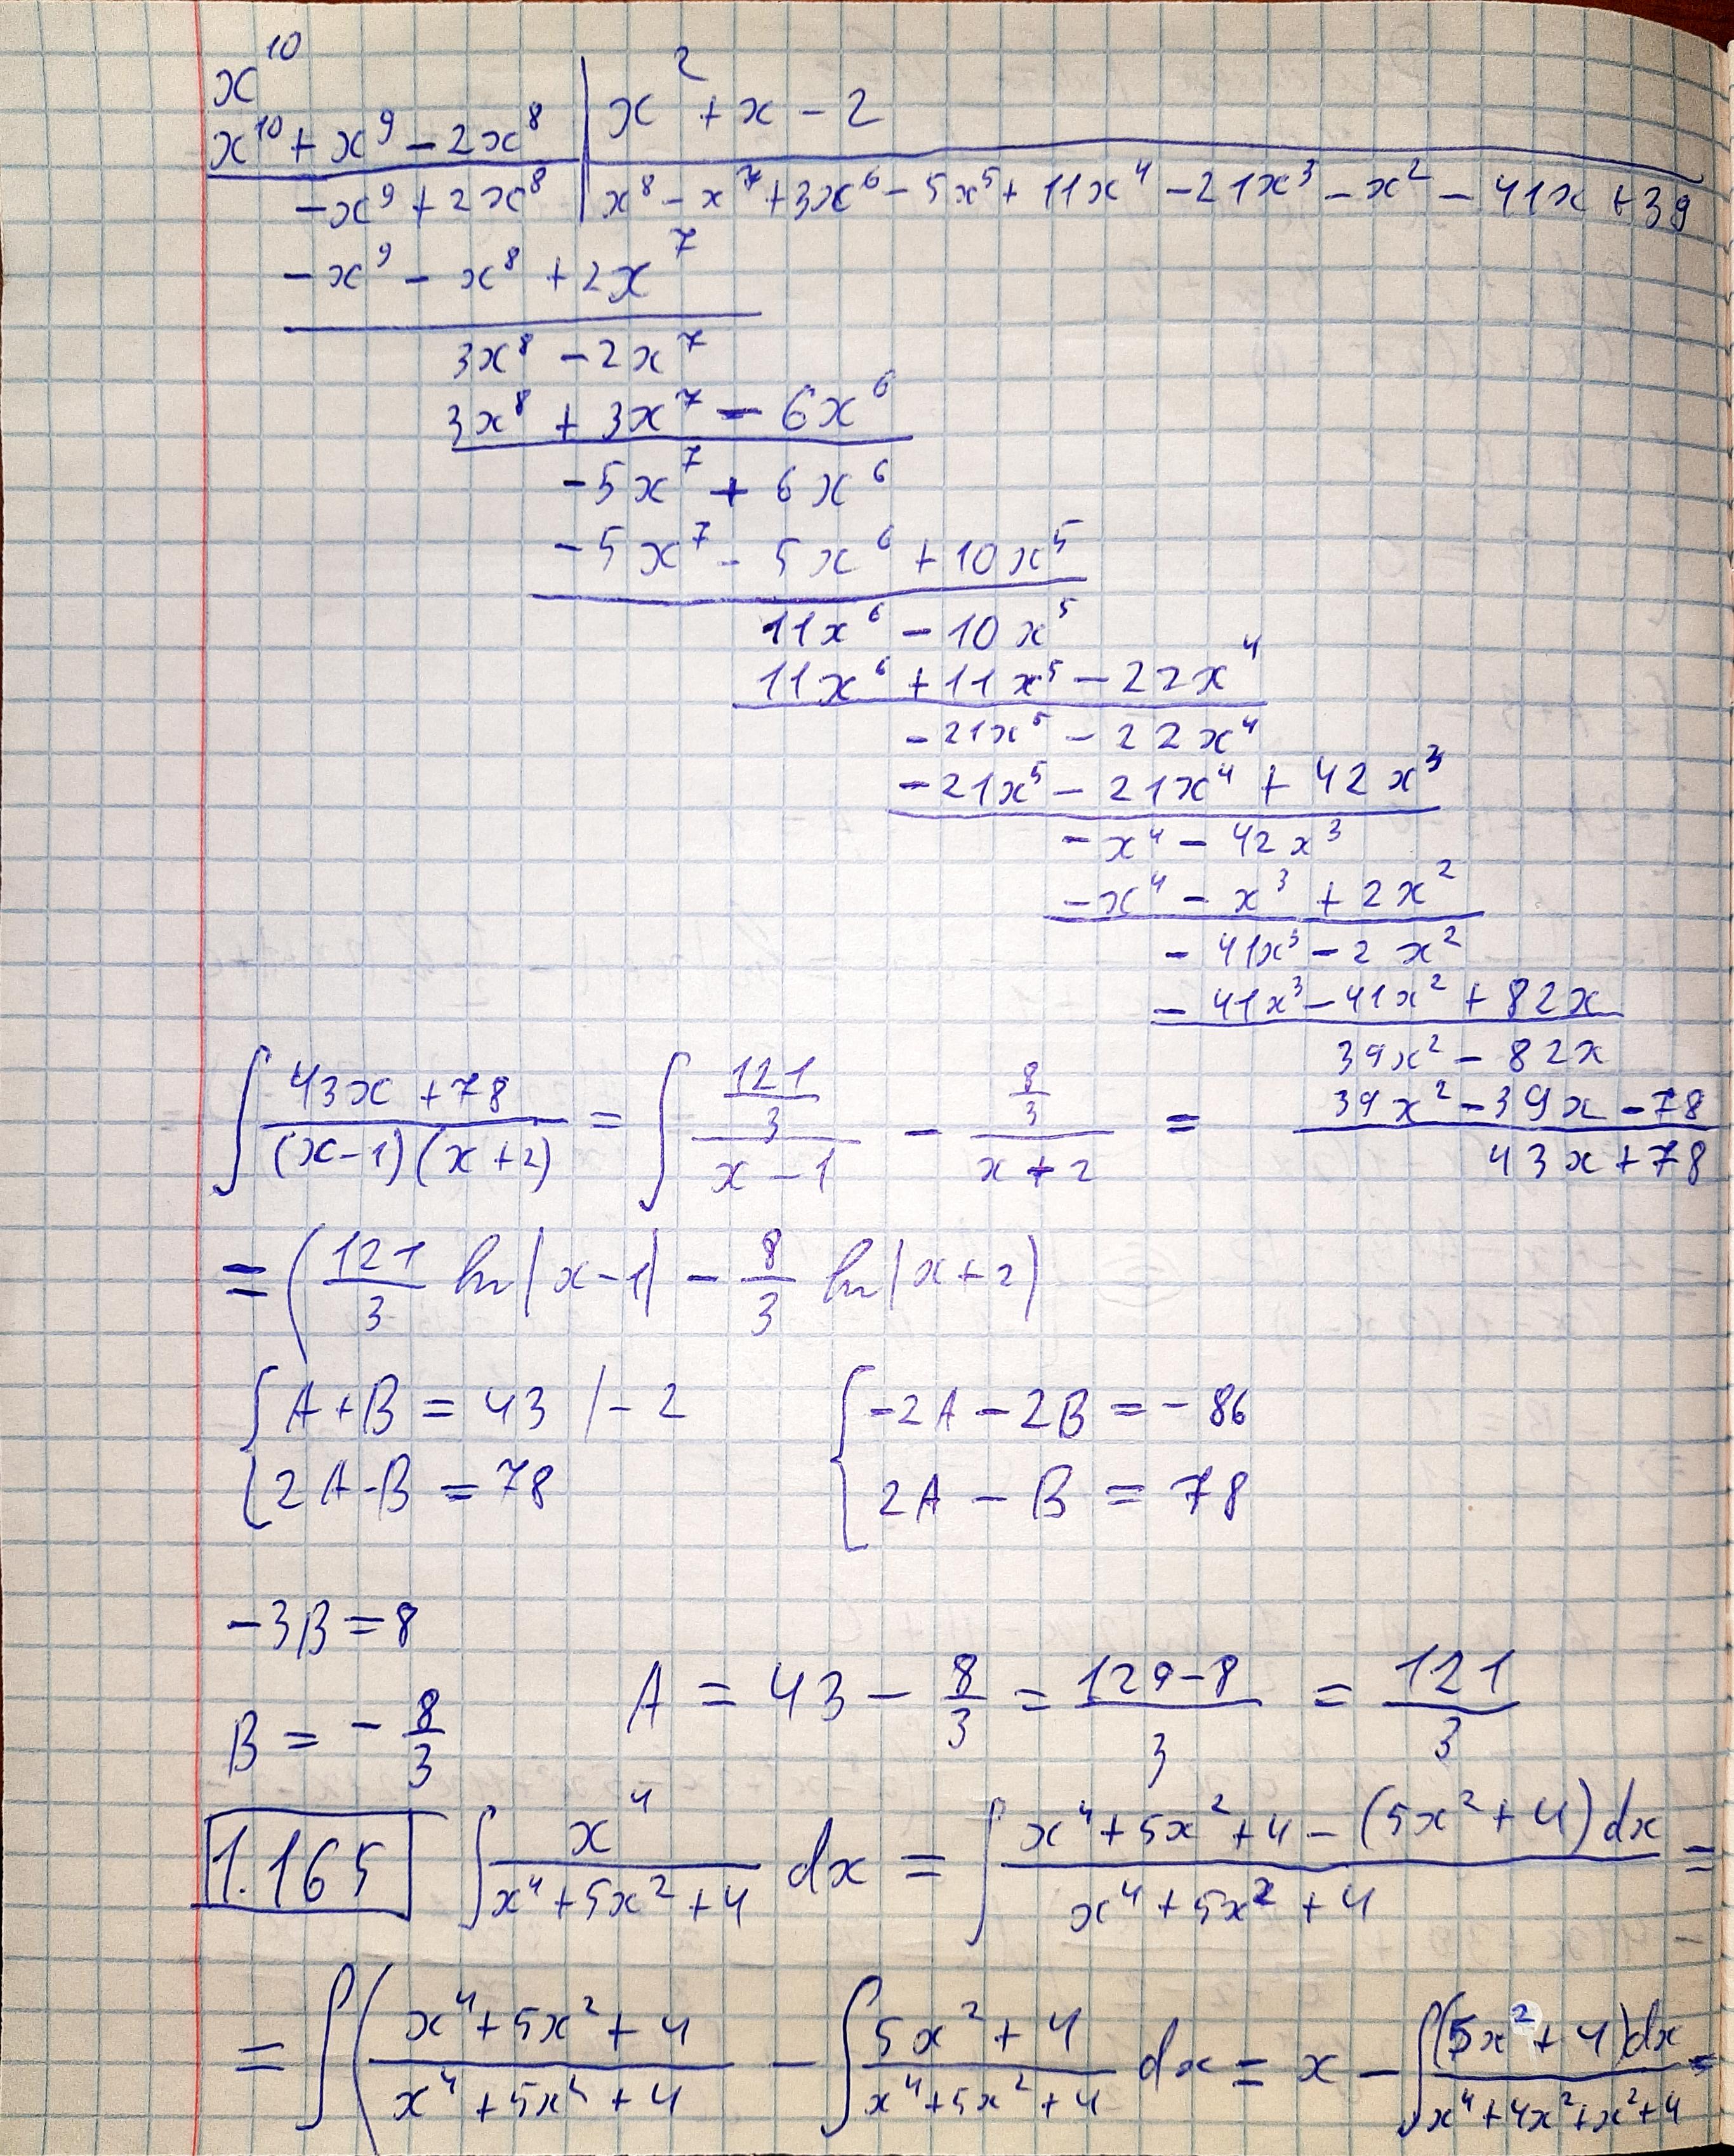 x^10
x^10 + x^9 - 2x^8 | x^2 + x - 2
-x^9 + 2x^8 | x^8 - x^7 + 3x^6 - 5x^5 + 11x^4 - 21x^3 - x^2 - 41x + 39
-x^9 - x^8 + 2x^7
3x^8 - 2x^7
3x^8 + 3x^7 - 6x^6
-5x^7 + 6x^6
-5x^7 - 5x^6 + 10x^5
11x^6 - 10x^5
11x^6 + 11x^5 - 22x^4
-21x^5 - 22x^4
-21x^5 - 21x^4 + 42x^3
-x^4 - 42x^3
-x^4 - x^3 + 2x^2
-41x^3 - 2x^2
-41x^3 - 41x^2 + 82x
39x^2 - 82x
39x^2 - 39x - 78
43x + 78
∫ (43x + 78)/((x-1)(x+2)) = ∫ (121/3)/(x-1) - (8/3)/(x+2) =
= (121/3 ln|x-1| - 8/3 ln|x+2)
{A + B = 43 /-2 {-2A - 2B = -86
{2A - B = 78 {2A - B = 78
-3B = 8
B = -8/3 A = 43 - 8/3 = (129-8)/3 = 121/3
1.165 ∫ x^4/(x^4 + 5x^2 + 4) dx = ∫ (x^4 + 5x^2 + 4 - (5x^2 + 4)dx)/(x^4 + 5x^2 + 4) =
= ∫( (x^4 + 5x^2 + 4)/(x^4 + 5x^2 + 4) - ∫ (5x^2 + 4)/(x^4 + 5x^2 + 4) dx = x - ∫ ((5x^2 + 4)dx)/(x^4 + 4x^2 + x^2 + 4) =